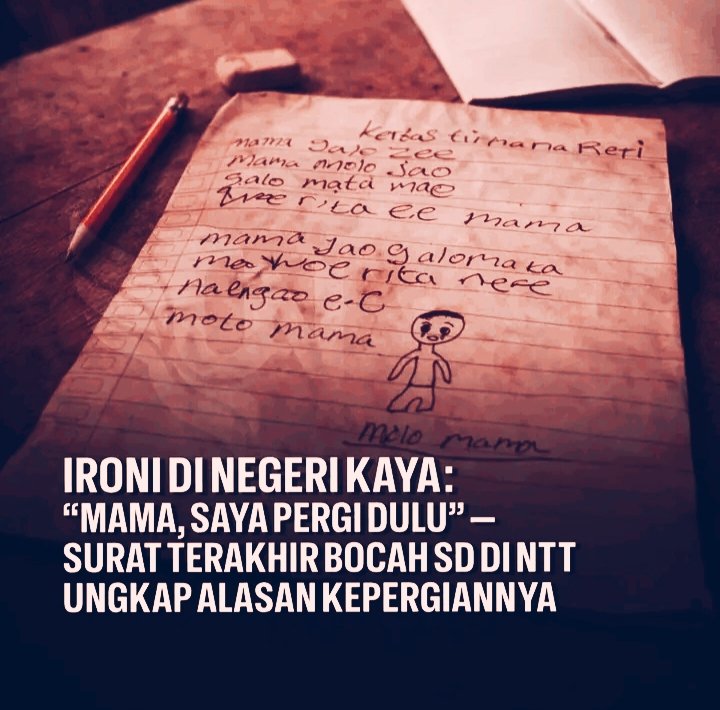 Kertas tirmana Reti
mama galo zee
mama molo Jao
galo mata mae
rita ee mama
mama jao galo mata
mae woe rita nere
nalngao e-e
moto mama
molo mama
IRONI DI NEGERI KAYA:
“MAMA, SAYA PERGI DULU” —
SURAT TERAKHIR BOCAH SD DI NTT
UNGKAP ALASAN KEPERGIANNYA